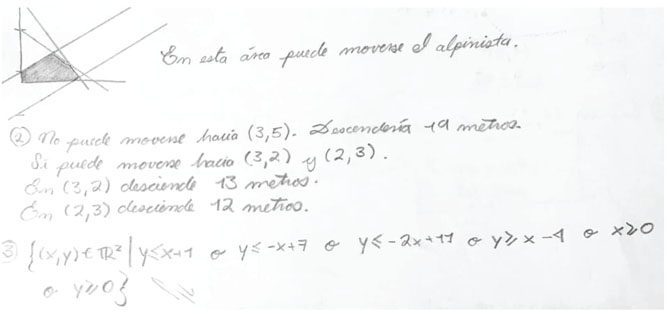 En esta área puede moverse el alpinista.
② No puede moverse hacia (3,5). Descendería 19 metros.
Si puede moverse hacia (3,2) y (2,3).
En (3,2) desciende 13 metros.
En (2,3) desciende 12 metros.
③ {(x,y) ∈ ℝ² | y≤x+1 o y≤-x+7 o y≤-2x+11 o y≥x-4 o x≥0
o y≥0}